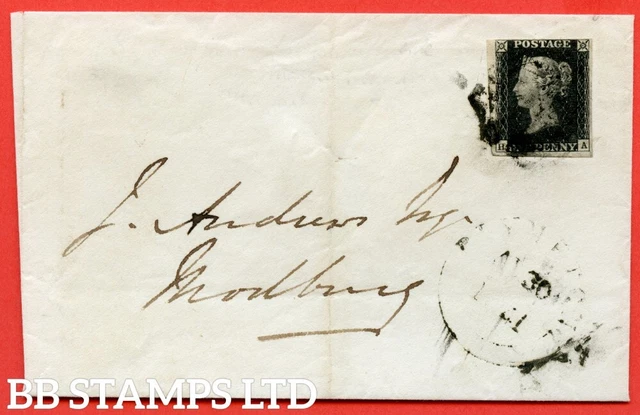 POSTAGE
H PENNY A
J. Andrews Esqr
Modbury
30
41
BB STAMPS LTD